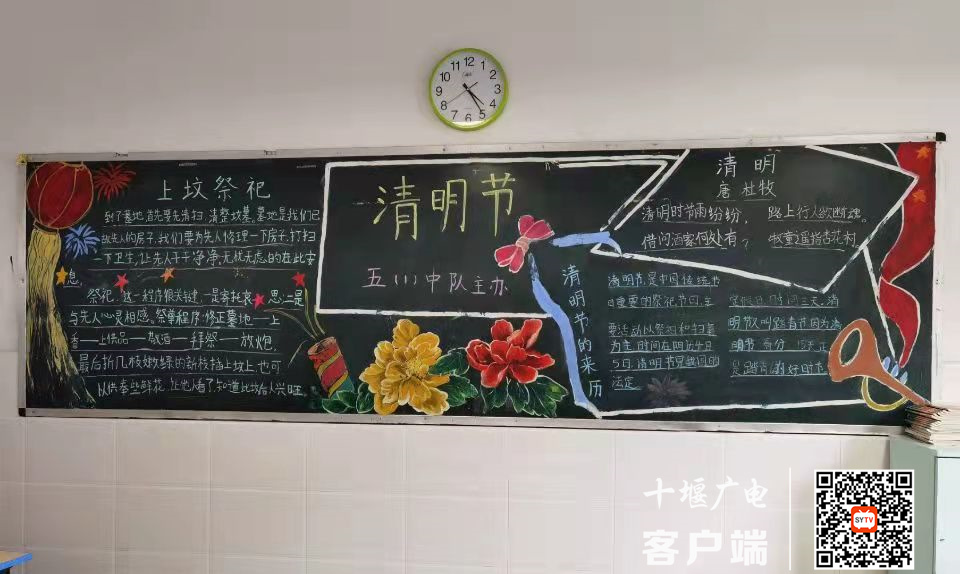 12
1
2
3
4
5
6
7
8
9
10
11
上坟祭祀
到了墓地首先要先清扫,清整坟墓,墓地是我们已
故先人的房子,我们要为先人修理一下房子,打扫
一下卫生,让先人干干净净,无忧无虑的在此安
息,
祭祀,这一程序很关键,一是寄托哀思,二是
与先人心灵相感,祭奠程序:修正墓地——上
香——上供品——敬酒——拜祭——放炮,
最后折几枝嫩绿的新枝插上坟上,也可
以供奉些鲜花,让他人看了,知道此坟后人兴旺。
清明节
五(1)中队主办
清明
唐 杜牧
清明时节雨纷纷, 路上行人欲断魂。
借问酒家何处有? 牧童遥指杏花村。
清明节的来历
清明节是中国传统节
日重要的祭祀节日,主
要活动以祭祖和扫墓
为主,时间在四近4月
5日,清明节是我国的
法定
假日,时间三天,清
明节又叫踏青节,因为清
明节
是踏青的好时
十堰广电
客户端
SYTV